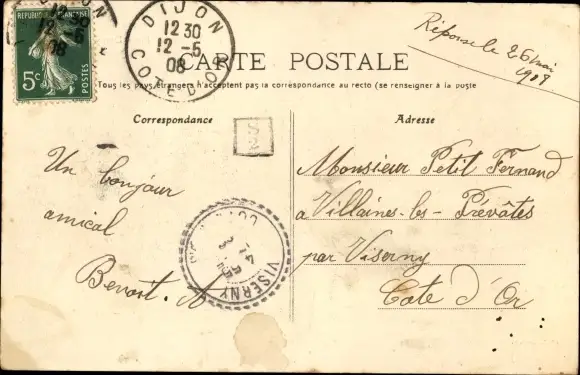 REPUBLIQUE FRANÇAISE
5c
POSTES
DIJON
12 30
12 - 5
08
COTE D'OR
Réponse le 26 mai
CARTE POSTALE
Tous les pays étrangers n'acceptent pas la correspondance au recto (se renseigner à la poste
Correspondance
Adresse
Un bonjour
amical
Benoit. A
VISERNY
Monsieur Petit Fernand
a Villaines-les-Prévôtes
par Viserny
Cote d'Or